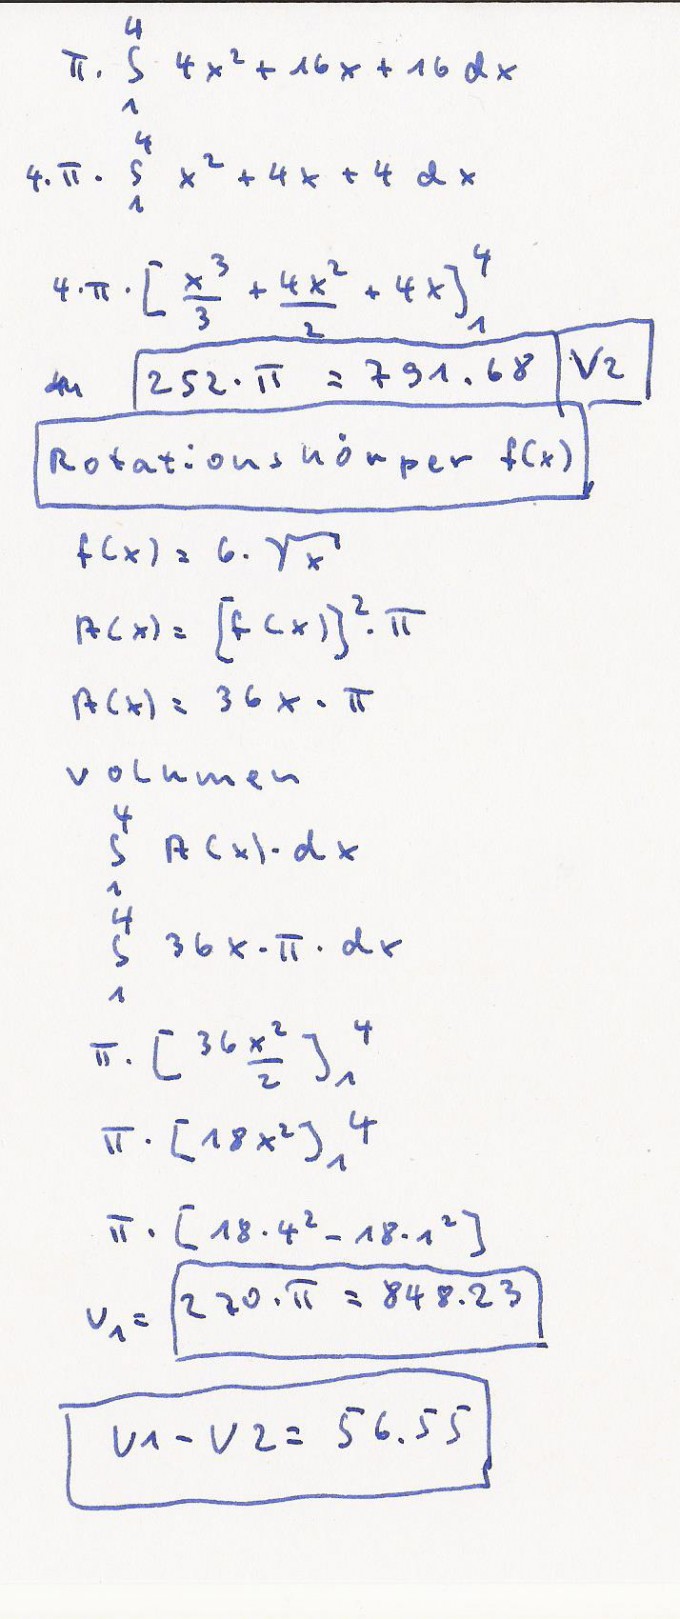 π. ∫₁⁴ 4x² + 16x + 16 dx
4.π. ∫₁⁴ x² + 4x + 4 dx
4.π.[x³/3 + 4x²/2 + 4x]₁⁴
252.π = 791.68 V2
Rotationskörper f(x)
f(x) = 6.√x
A(x) = [f(x)]².π
A(x) = 36x.π
Volumen
∫₁⁴ A(x).dx
∫₁⁴ 36x.π.dx
π.[36x²/2]₁⁴
π.[18x²]₁⁴
π.[18.4² - 18.1²]
V₁ = 270.π = 848.23
V1 - V2 = 56.55